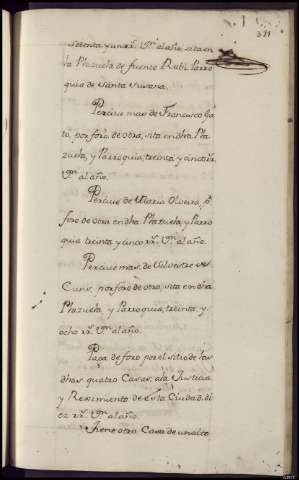 371
setenta y un rr.s V.on al año, sita en
la Plazuela de fuente Rabi. Parro
quia de Santa Susana.
Percive mas de Francisco
por foro de otra, sita en dha Pla
zuela, y Parroquia, treinta y cinco rr.s
V.on al año.
Percive de Maria Olveira, p.r
foro de otra en dha Plazuela, y Parro
quia treinta y cinco rr.s V.on al año.
Percive mas, de Silvestre de
por foro de otra, sita en dha
Plazuela y Parroquia, treinta, y
ocho rr.s V.on al año.
Paga de foro por el sitio de las
dhas quatro Casas, ala Justicia
y Reximiento de esta Ciudad, di
ez rr.s V.on al año.
tiene otra Casa de un alto